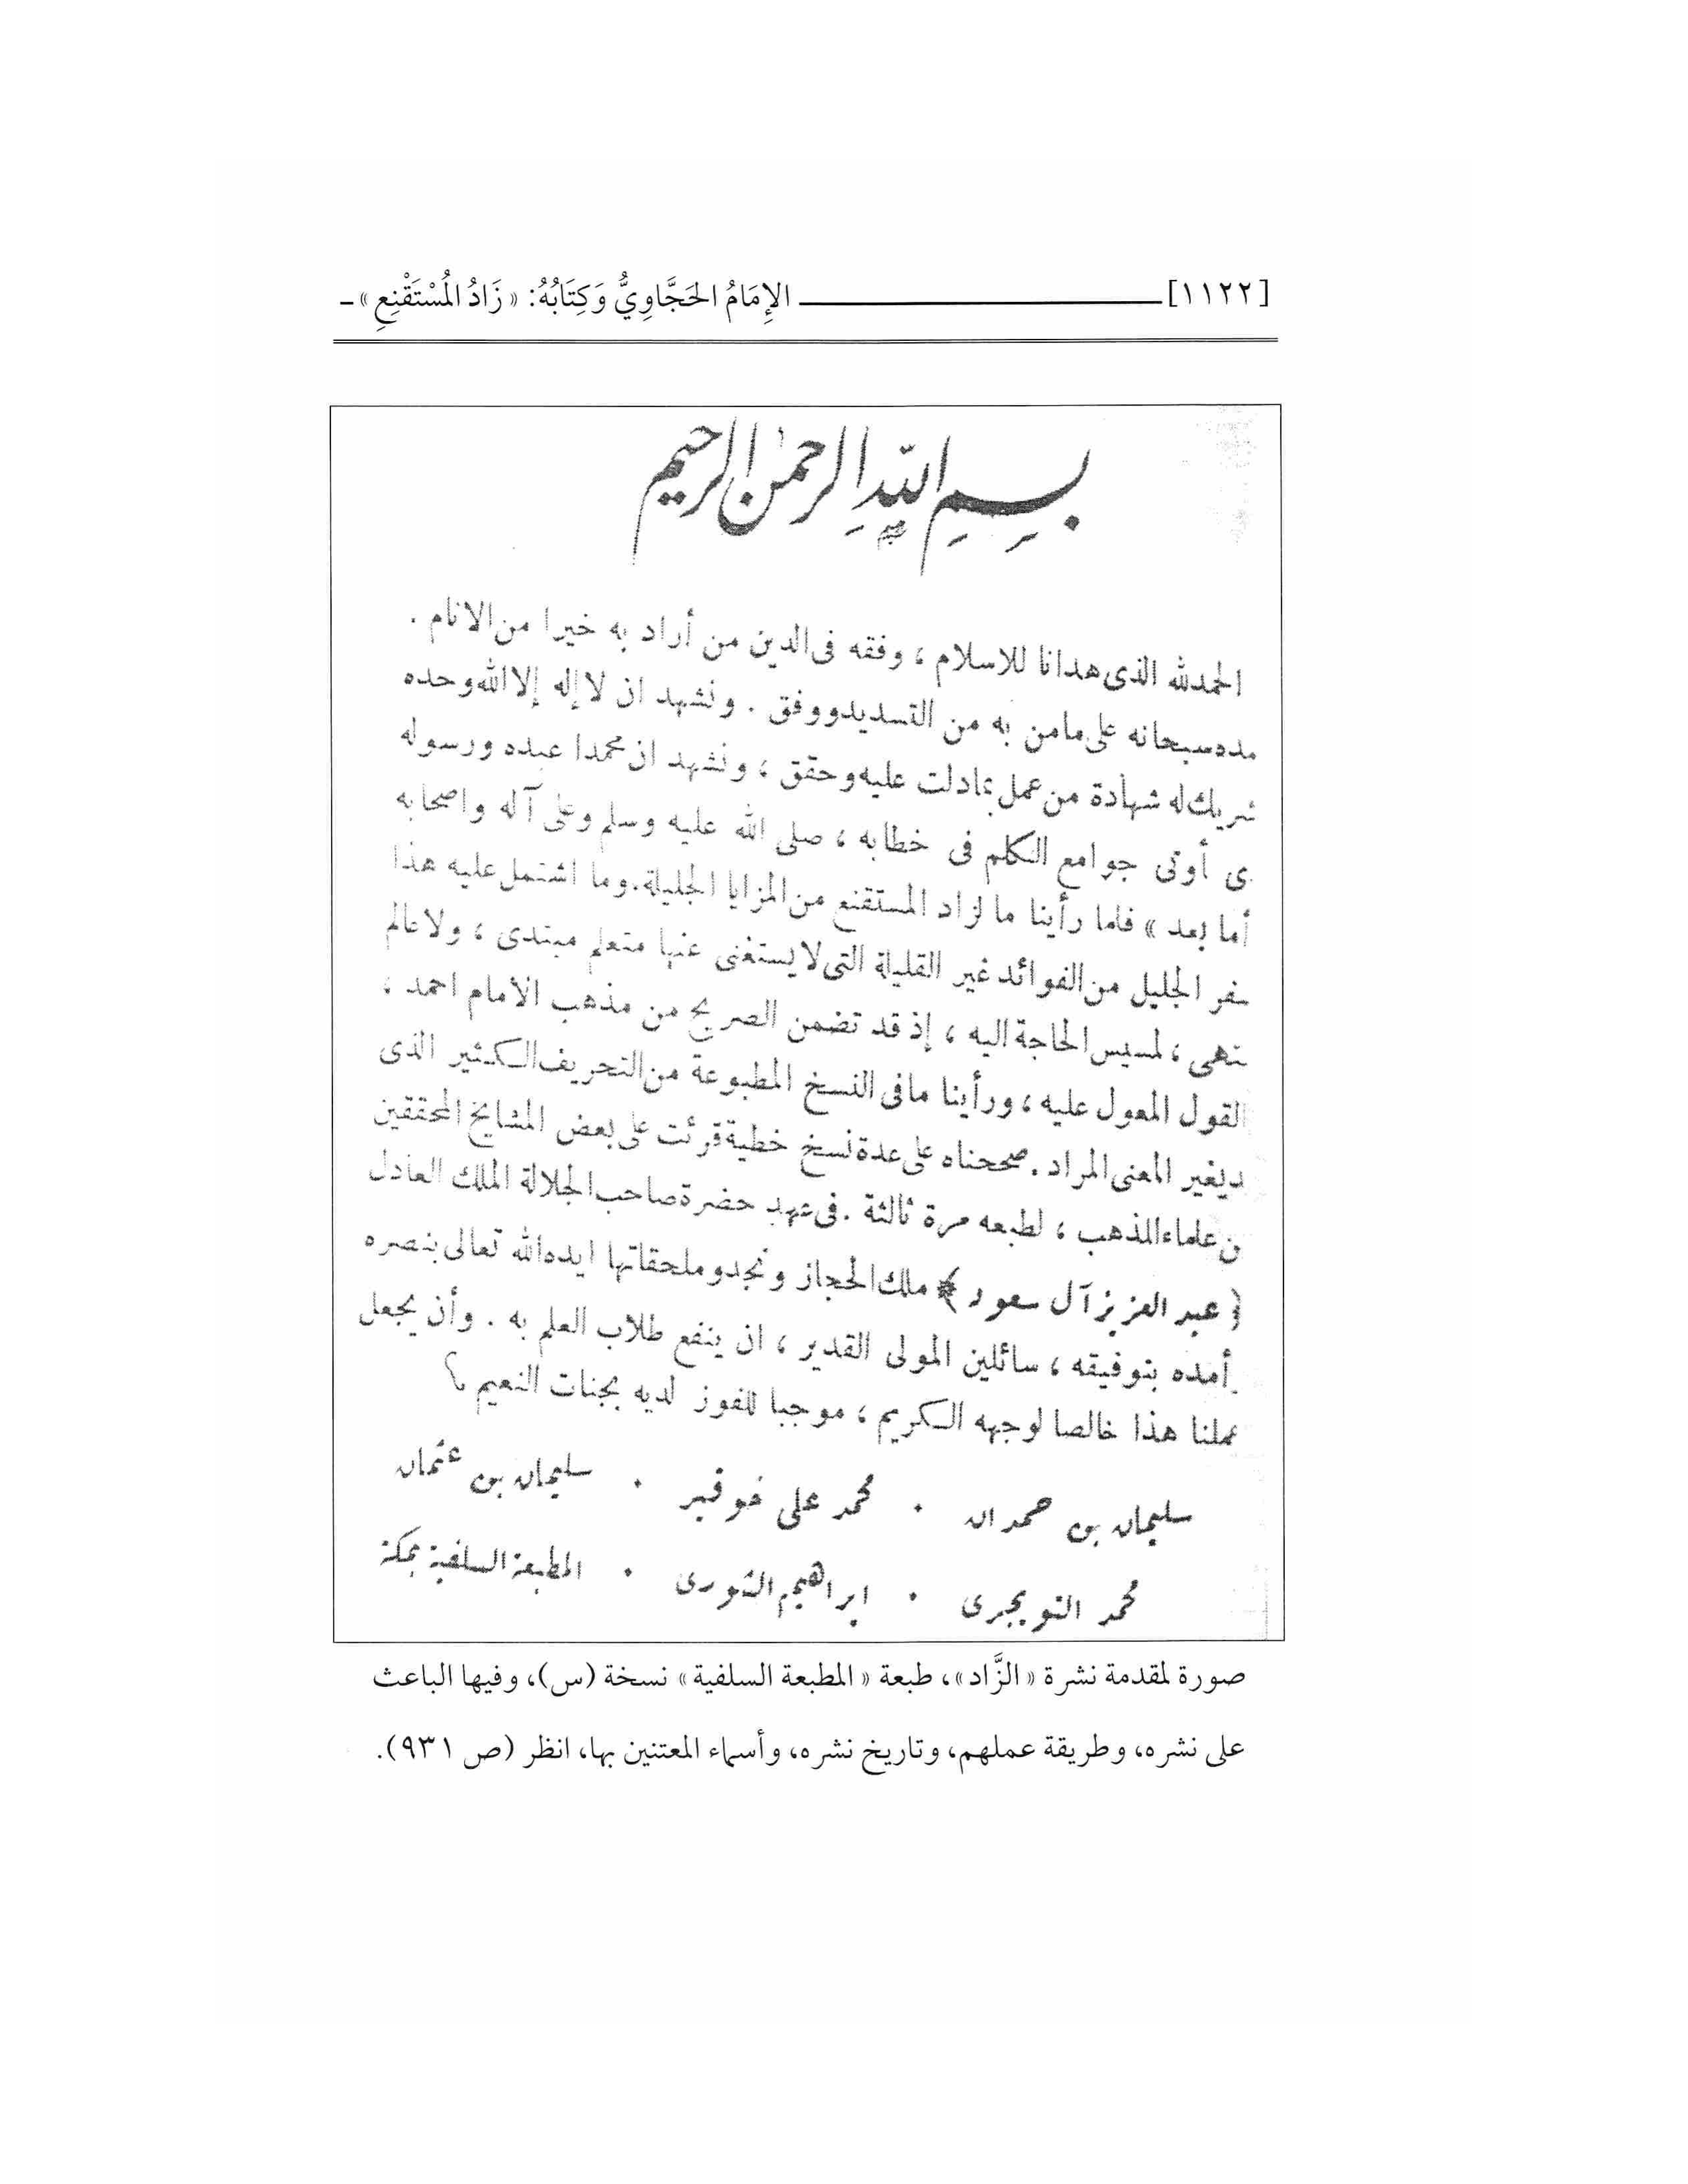 [١١٢٢] الإِمَامُ الحَجَّاوِيُّ وَكِتَابُهُ: «زَادُ المُسْتَقْنِعِ»
بسم الله الرحمن الرحيم
الحمد لله الذى هدانا للاسلام ، وفقه فى الدين من أراد به خيرا من الانام .
مده سبحانه على مامن به من التسديد ووفق . ونشهد ان لا إله إلا الله وحده
شريك له شهادة من عمل بمادلت عليه وحقق ، ونشهد ان محمدا عبده ورسوله
ى أوتى جوامع الكلم فى خطابه ، صلى الله عليه وسلم وعلى آله واصحابه
أما بعد » فلما رأينا ما لزاد المستقنع من المزايا الجليلة. وما اشتمل عليه هذا
سفر الجليل من الفوائد غير القليلة التى لا يستغنى عنها متعلم مبتدى ، ولا عالم
نتهى ، لمسيس الحاجة اليه ، إذ قد تضمن الصريح من مذهب الامام احمد ،
القول المعول عليه ، ورأينا مافى النسخ المطبوعة من التحريف الكثير الذى
ديغير المعنى المراد . صححناه على عدة نسخ خطية قرئت على بعض المشايخ المحققين
ن علماء المذهب ، لطبعه مرة ثالثة . فى عهد حضرة صاحب الجلالة الملك العادل
﴿ عبد العزيز آل سعود ﴾ ملك الحجاز ونجد وملحقاتها ايده الله تعالى بنصره
أمده بتوفيقه ، سائلين المولى القدير ، ان ينفع طلاب العلم به . وأن يجعل
عملنا هذا خالصا لوجهه الكريم ، موجبا للفوز لديه بجنات النعيم
سليمان بن حمدان . محمد على خوقير . سليمان بن عثمان
محمد التويجرى . ابراهيم الشورى . المطبعة السلفية بمكة
صورة لمقدمة نشرة «الزَّاد»، طبعة «المطبعة السلفية» نسخة (س)، وفيها الباعث
على نشره، وطريقة عملهم، وتاريخ نشره، وأسماء المعتنين بها، انظر (ص ٩٣١).